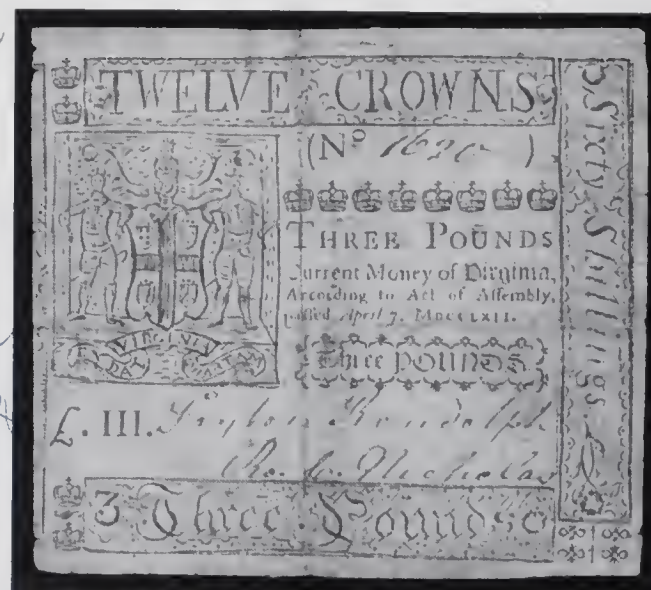 TWELVE CROWNS
(No 1620 )
THREE POUNDS
Current Money of Virginia,
According to Act of Assembly,
passed April 7, MDCCLXII.
Three POUNDS
VIRGINIA
EN DAT
QUARTAM
£. III. Peyton Randolph
Ro. C. Nicholas
3 Three Pounds
Sixty Shillings